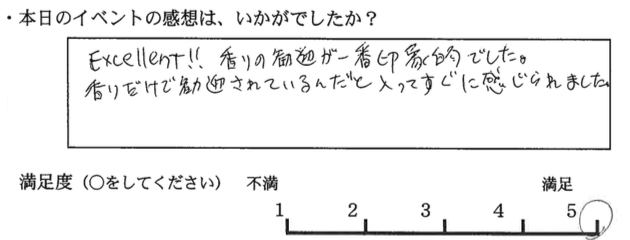 ・本日のイベントの感想は、いかがでしたか？
Excellent!! 香りの勧迎が一番印象的でした。
香りだけで勧迎されているんだと入ってすぐに感じられました。
満足度（○をしてください） 不満 満足
1 2 3 4 5